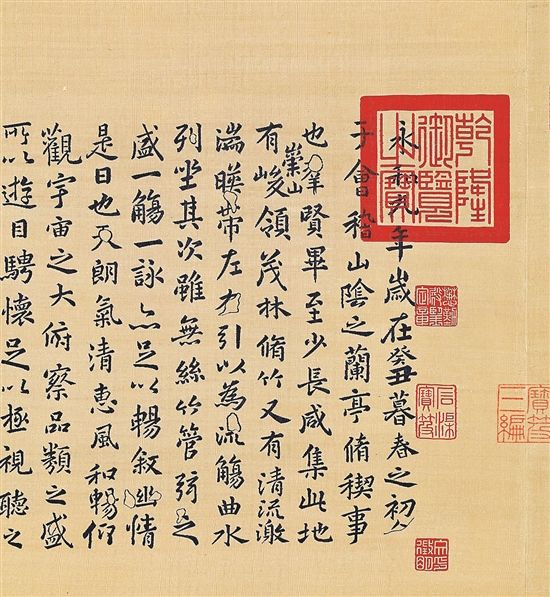 寶笈三編
乾隆御覽之寶
石渠寶笈
永和九年歲在癸丑暮春之初會
于會稽山陰之蘭亭脩稧事
也羣賢畢至少長咸集此地
有崇山峻領茂林脩竹又有清流激
湍暎帶左右引以為流觴曲水
列坐其次雖無絲竹管弦之
盛一觴一詠亦足以暢敘幽情
是日也天朗氣清惠風和暢仰
觀宇宙之大俯察品類之盛
所以遊目騁懷足以極視聽之